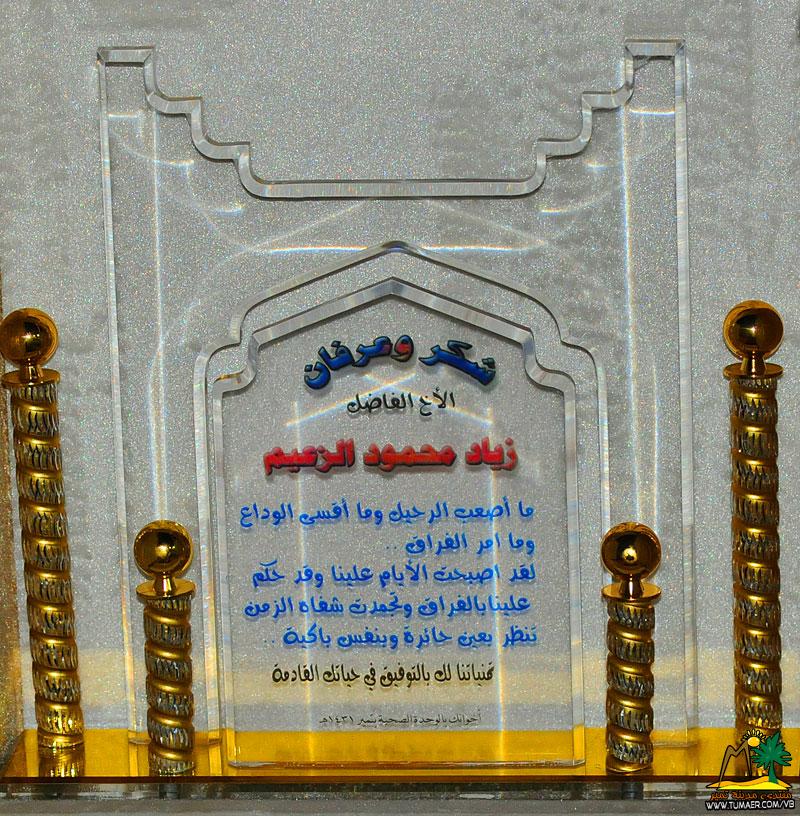 شكر وعرفان
الأخ الفاضل
زياد محمود الزعيم
ما أصعب الرحيل وما أقسى الوداع
وما امر الفراق ..
لقد اصبحت الأيام علينا وقد حكم
علينا بالفراق وتجمدت شفاه الزمن
تنظر بعين حائرة وبنفس باكية ..
تمنياتنا لك بالتوفيق في حياتك القادمة
أخوانك بالوحدة الصحية بتمير ١٤٣١هـ
منتدى مدينة تمير
WWW.TUMAER.COM/VB